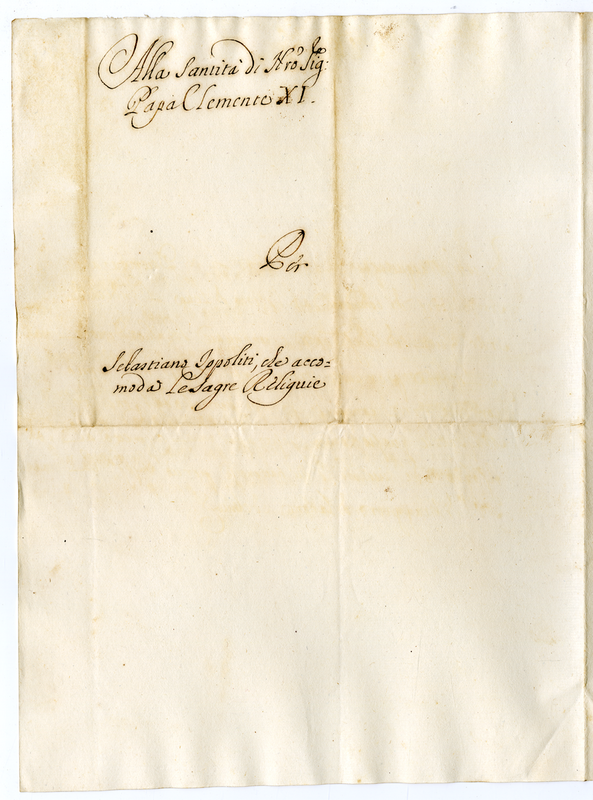 Alla Santità di Nrõ Sig.re
Papa Clemente XI.
Per
Sebastiano Ippoliti, che acco=
moda le Sagre Reliquie